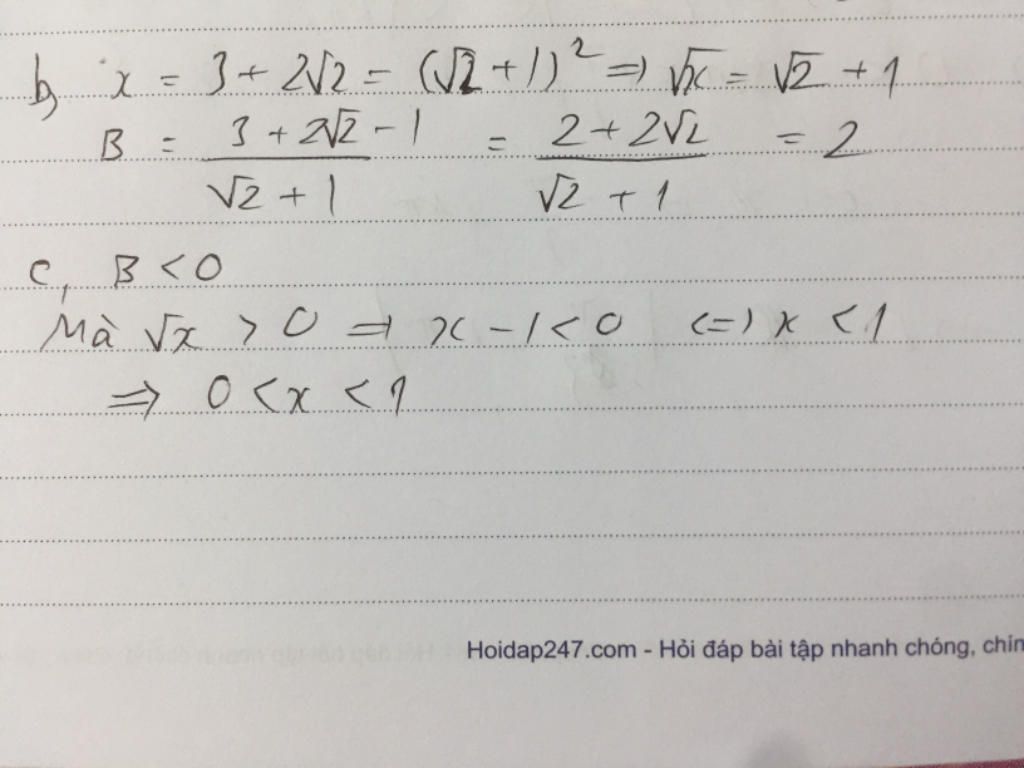 b, x = 3 + 2√2 = (√2 + 1)² => √x = √2 + 1
B = (3 + 2√2 - 1)/(√2 + 1) = (2 + 2√2)/(√2 + 1) = 2
c, B < 0
Mà √x > 0 => x - 1 < 0 <=> x < 1
=> 0 < x < 1
Hoidap247.com - Hỏi đáp bài tập nhanh chóng, chín